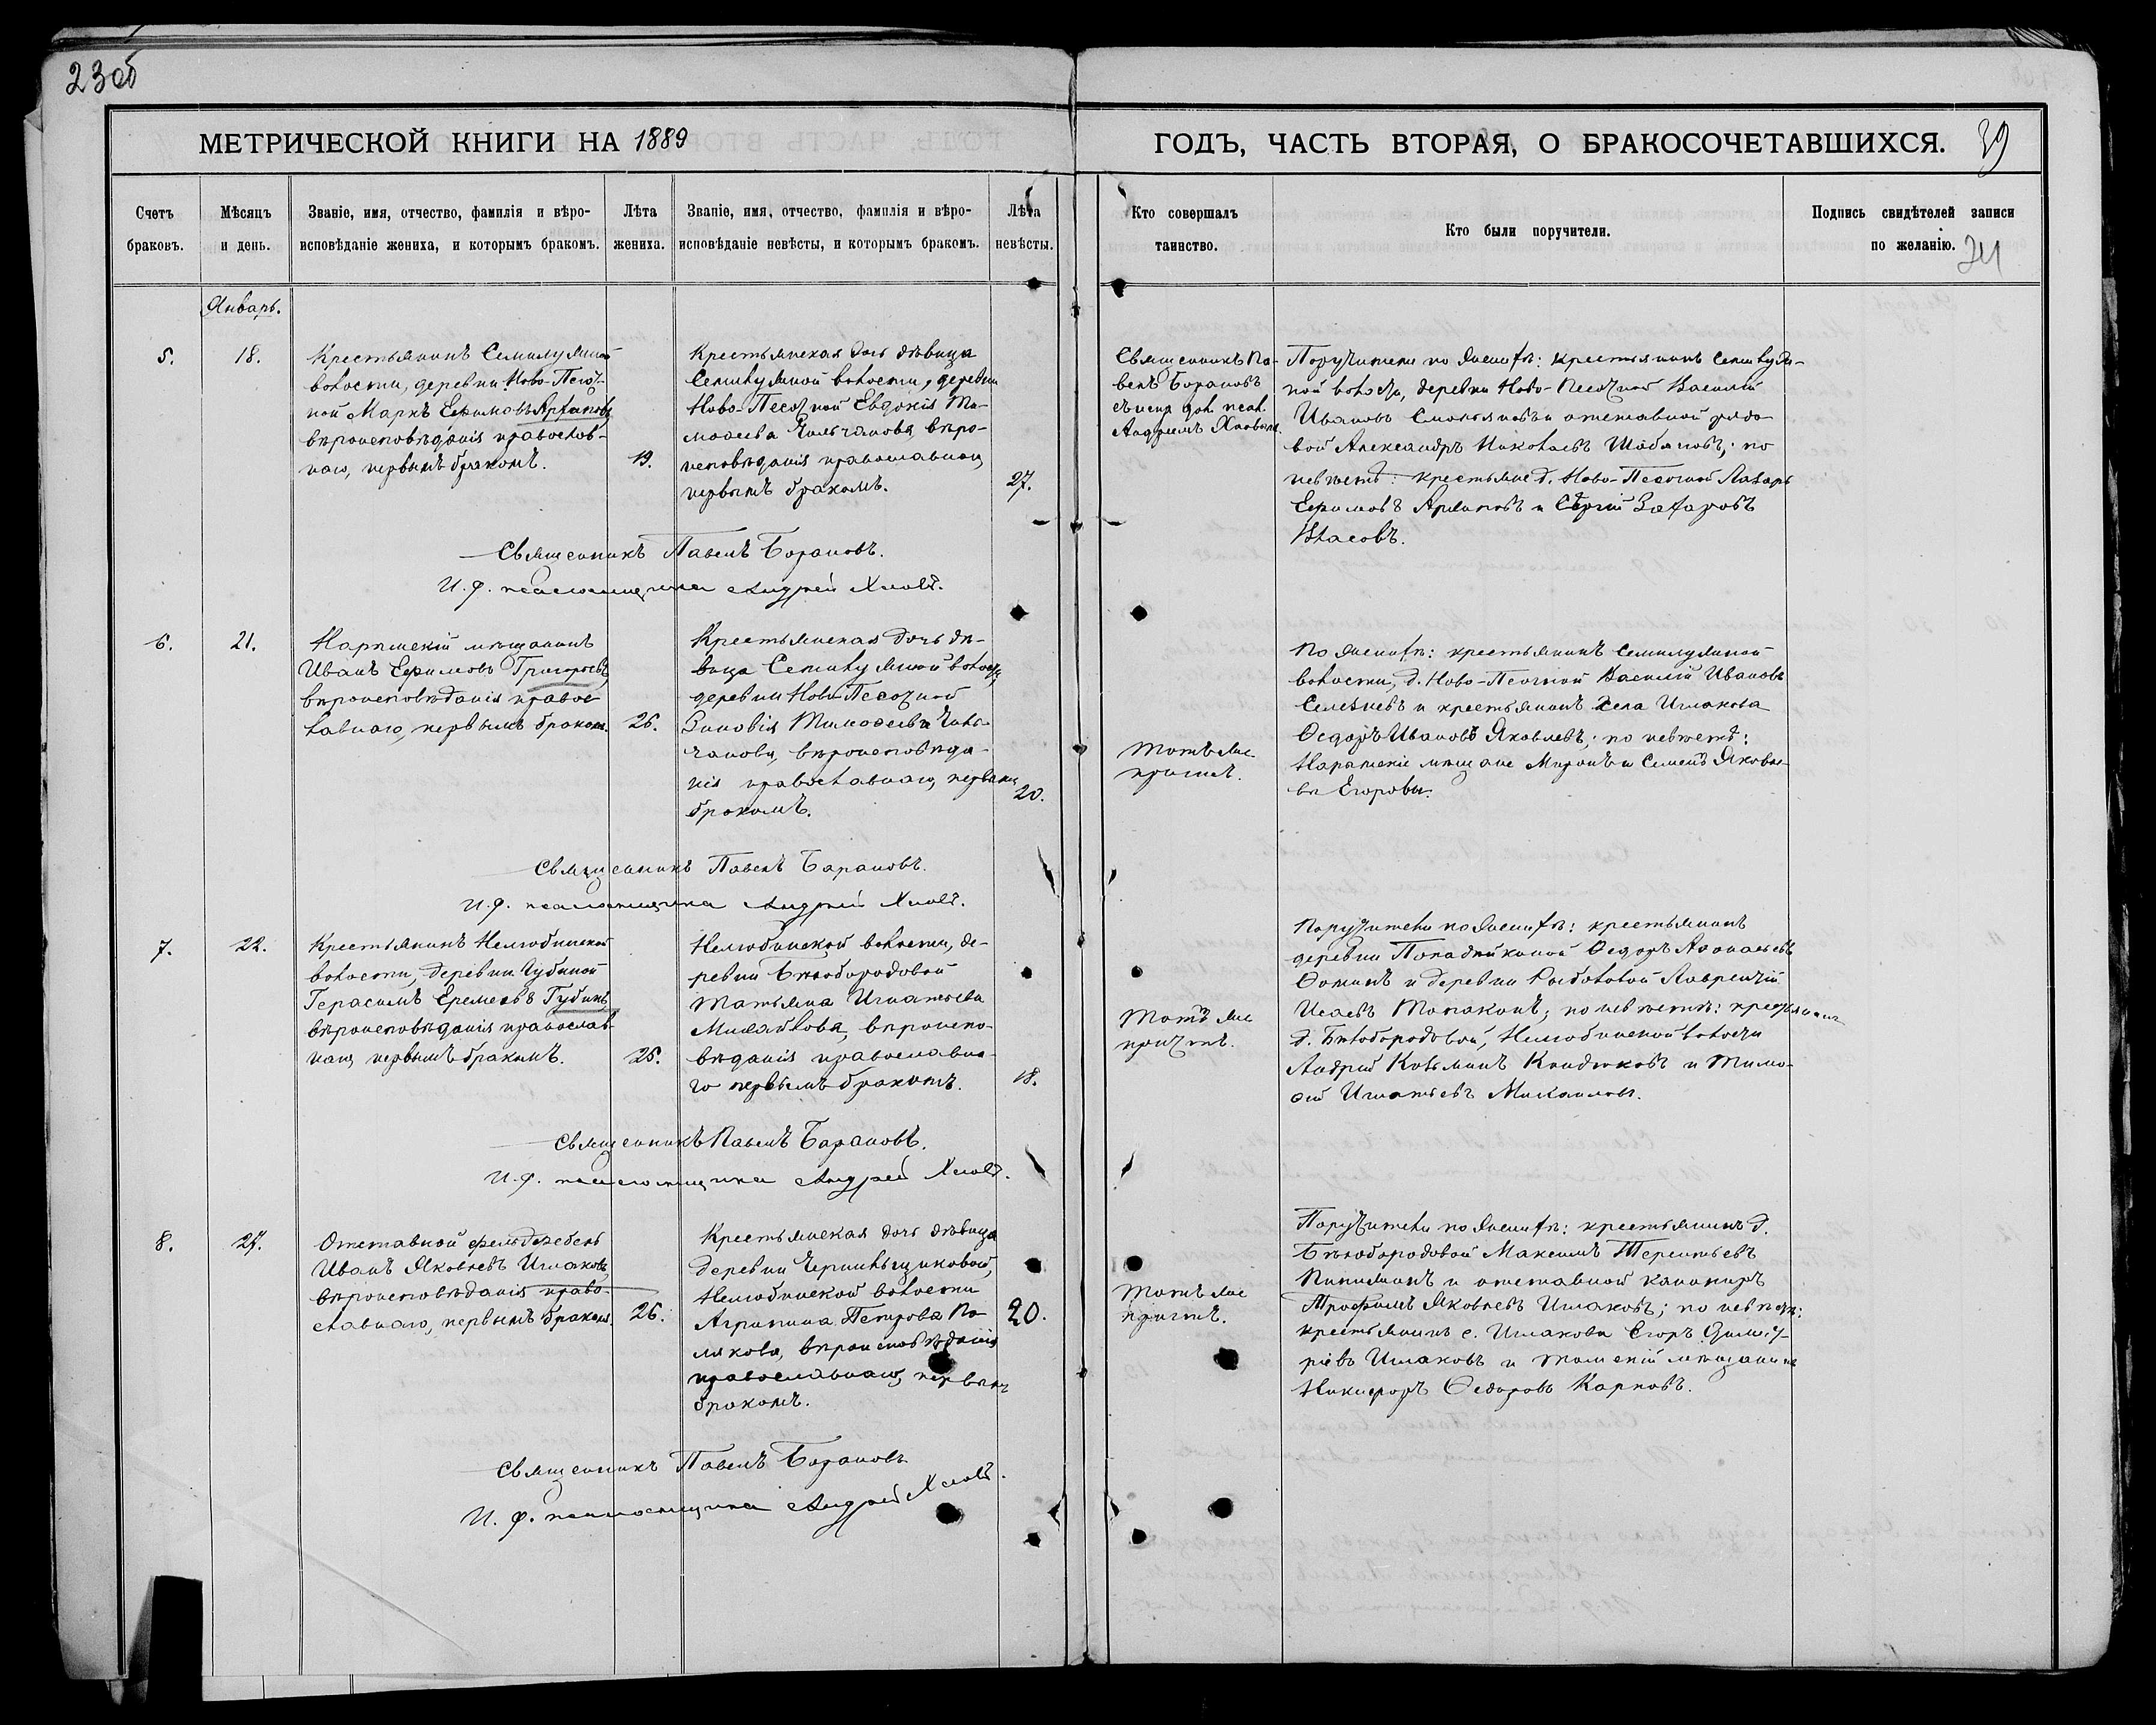 23об
МЕТРИЧЕСКОЙ КНИГИ НА 1889
ГОДЪ, ЧАСТЬ ВТОРАЯ, О БРАКОСОЧЕТАВШИХСЯ.
39
Счетъ браковъ.
Мѣсяцъ и день.
Званіе, имя, отчество, фамилія и вѣро-
исповѣданіе жениха, и которымъ бракомъ.
Лѣта жениха.
Званіе, имя, отчество, фамилія и вѣро-
исповѣданіе невѣсты, и которымъ бракомъ.
Лѣта невѣсты.
Кто совершалъ
таинство.
Кто были поручители.
Подпись свидѣтелей записи
по желанію.
Январь.
5.
18.
Крестьянинъ Семилужной
волости, деревни Ново-Песоч-
ной Маркъ Ефимовъ
вѣроисповѣданія православ-
наго, первымъ бракомъ.
19.
Крестьянская дочь дѣвица
Семилужной волости, деревни
Ново-Песочной Евдокія Ти-
моѳеева вѣро-
исповѣданія православнаго,
первымъ бракомъ.
27.
Священникъ Па-
велъ Барановъ
съ исп. дол. псал.
Андреемъ
Поручители по женихѣ: крестьянинъ Семилуж-
ной волости, деревни Ново-Песочной Василій
Ивановъ и отставной рядо-
вой Александръ Николаевъ Шабановъ; по
невѣстѣ: крестьяне д. Ново-Песочной Лазарь
Ефимовъ и Сергій Захаровъ
Власовъ.
Священникъ Павелъ Барановъ.
И. д. псаломщика Андрей
6.
21.
Нарымскій мѣщанинъ
Иванъ Ефимовъ Григорьевъ,
вѣроисповѣданія правос-
лавнаго, первымъ бракомъ.
26.
Крестьянская дочь дѣ-
вица Семилужной волости,
деревни Ново-Песочной
Зиновія Тимоѳеева
вѣроисповѣда-
нія православнаго, первымъ
бракомъ.
20.
Тотъ же
причтъ.
По женихѣ: крестьянинъ Семилужной
волости, д. Ново-Песочной Василій Ивановъ
Селезневъ и крестьянинъ села Ишакова
Ѳедоръ Ивановъ Яковлевъ; по невѣстѣ:
Нарымскіе мѣщане Миронъ и Семенъ Яковле-
вы Егоровы.
Священникъ Павелъ Барановъ.
И. д. псаломщика Андрей
7.
22.
Крестьянинъ Нелюбинской
волости, деревни Губиной
Герасимъ Еремеевъ Губинъ,
вѣроисповѣданія православ-
наго, первымъ бракомъ.
25.
Нелюбинской волости, де-
ревни Бѣлобородовой
Татьяна Игнатьева
Михайлова, вѣроиспо-
вѣданія православна-
го первымъ бракомъ.
18.
Тотъ же
причтъ.
Поручители по женихѣ: крестьянинъ
деревни Ѳедоръ Аѳонасьевъ
Ѳоминъ и деревни Рыболовой Лаврентій
Исаевъ; по невѣстѣ: крестьянинъ
д. Бѣлобородовой, Нелюбинской волости
Андрей Козьминъ и Тимо-
ѳей Игнатьевъ Михайловъ.
Священникъ Павелъ Барановъ.
И. д. псаломщика Андрей
8.
Отставной фельдфебель
Иванъ Яковлевъ Ишаковъ,
вѣроисповѣданія право-
славнаго, первымъ бракомъ.
26.
Крестьянская дочь дѣвица
деревни Чернильщиковой,
Нелюбинской волости
Агрипина Петрова По-
лякова, вѣроисповѣданія
православнаго, первымъ
бракомъ.
20.
Тотъ же
причтъ.
Поручители по женихѣ: крестьянинъ д.
Бѣлобородовой Максимъ Терентьевъ
и отставной канониръ
Трофимъ Яковлевъ Ишаковъ; по невѣстѣ:
крестьянинъ с. Ишакова Егоръ Димит-
ріевъ Ишаковъ и томскій мѣщанинъ
Никифоръ Ѳедоровъ Карповъ.
Священникъ Павелъ Барановъ
И. д. псаломщика Андрей